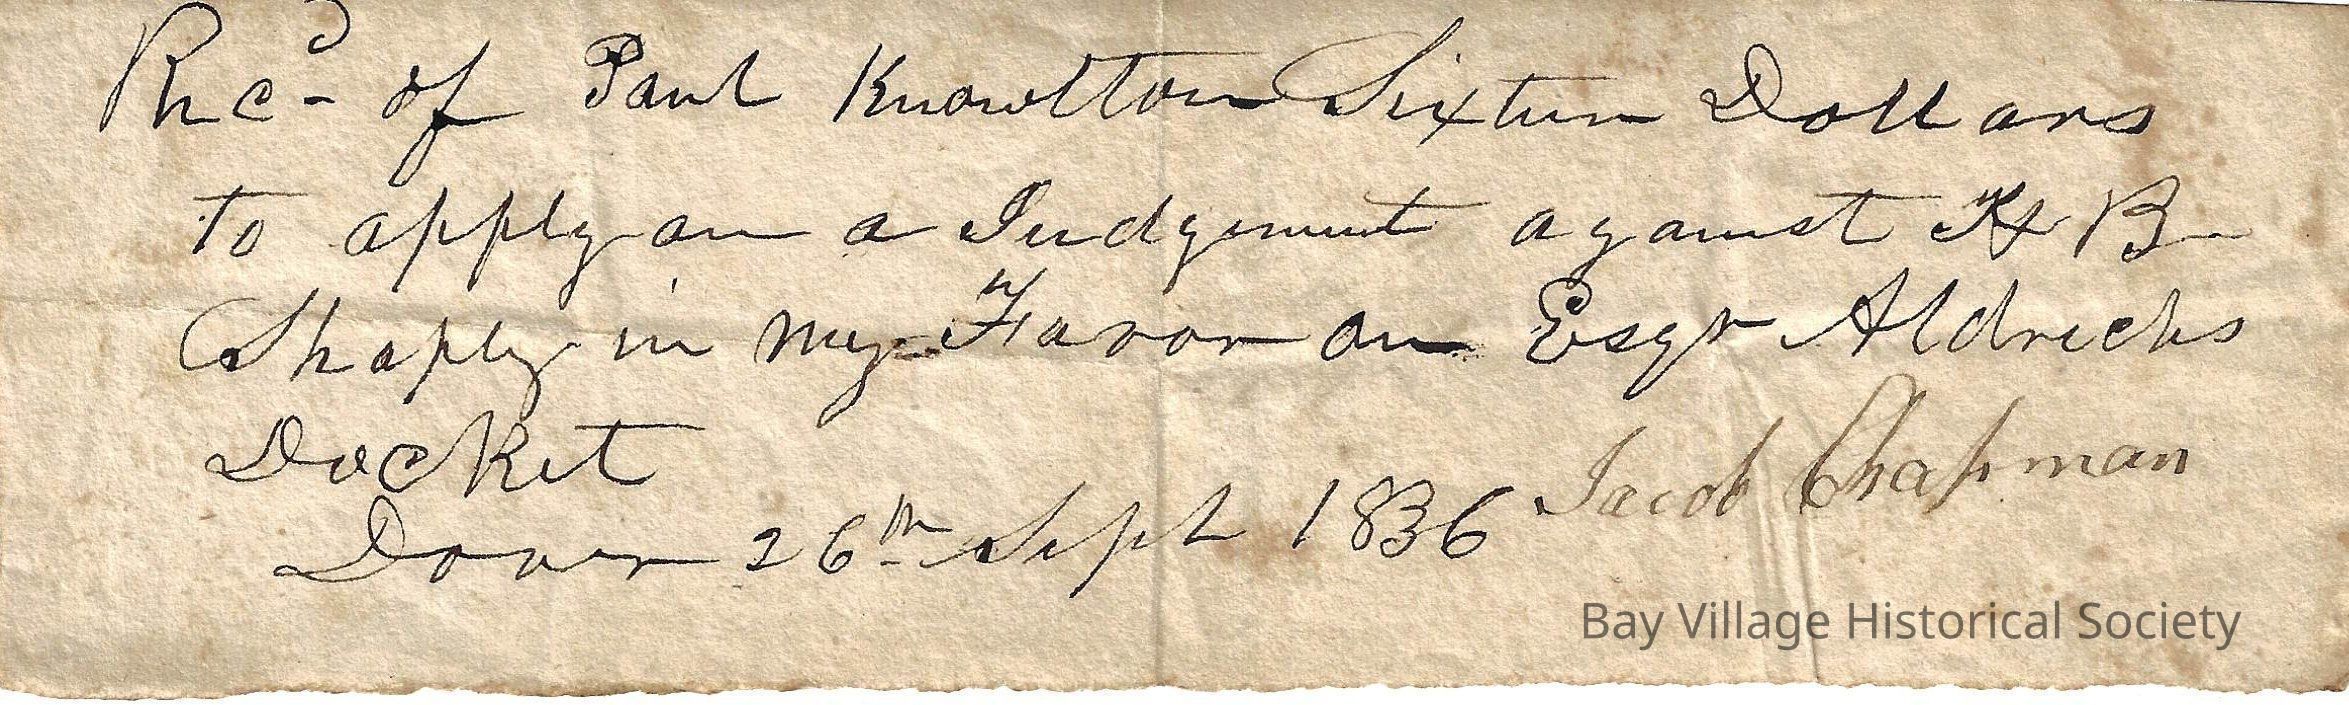 Rec^d of Paul Knowlton Sixteen Dollars
to apply on a Judgement against H B
Shaply in my Favor on Esqr Aldrichs
Docket
Jacob Chapman
Dover 26th Sept 1836
Bay Village Historical Society